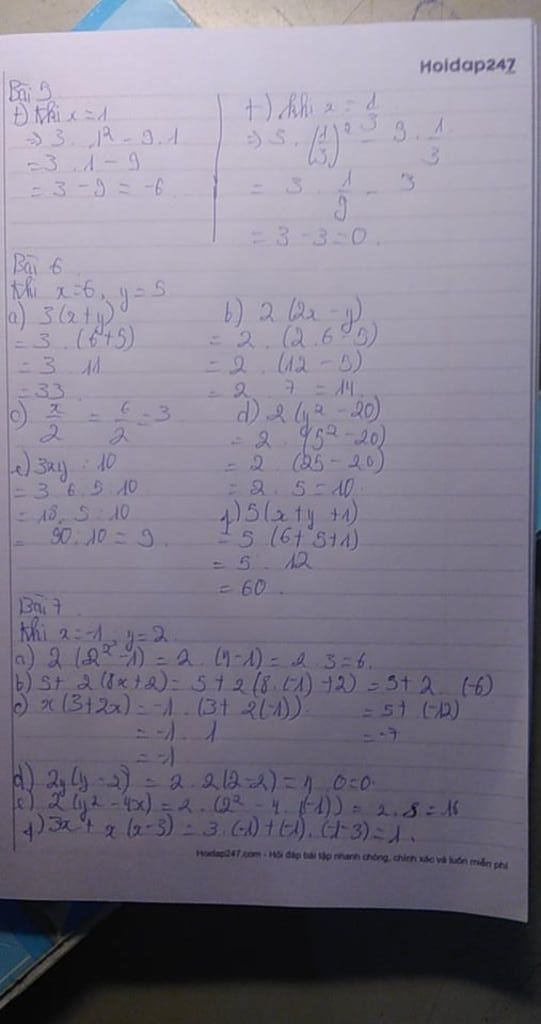 Hoidap247
Bài 5
+) Khi x = 1
=> 3 . 1² - 9 . 1
= 3 . 1 - 9
= 3 - 9 = -6
+) khi x = 1/3
=> 3 . (1/3)² - 9 . 1/3
= 3 . 1/9 - 3
= 3 - 3 = 0 .
Bài 6
Khi x = 6, y = 5
a) 3(x+y)
= 3 . (6+5)
= 3 11
= 33
b) 2 (2x - y)
= 2 . (2.6 - 5)
= 2 . (12 - 5)
= 2 . 7 = 14.
c) x/2 = 6/2 = 3
d) 2(y² - 20)
= 2 . (5² - 20)
= 2 . (25 - 20)
= 2 . 5 = 10.
e) 3xy : 10
= 3 6 . 5 : 10
= 18 . 5 : 10
= 90 : 10 = 9
f) 5(x + y + 1)
= 5 (6 + 5 + 1)
= 5 . 12
= 60 .
Bài 7
Khi x = -1, y = 2
a) 2 (2² - 1) = 2 . (4 - 1) = 2 . 3 = 6.
b) 5 + 2(8x + 2) = 5 + 2(8.(-1) + 2) = 5 + 2 . (-6)
= 5 + (-12)
= -7
c) x(3 + 2x) = -1 . (3 + 2(-1))
= -1 . 1
= -1
d) 2y(y - 2) = 2 . 2(2 - 2) = 4 . 0 = 0.
e) 2(y² - 4x) = 2 . (2² - 4 . (-1)) = 2 . 8 = 16
f) 3x + x (x - 3) = 3 . (-1) + (-1) . (-1 - 3) = 1 .
Hoidap247.com - Hỏi đáp bài tập nhanh chóng, chính xác và luôn miễn phí